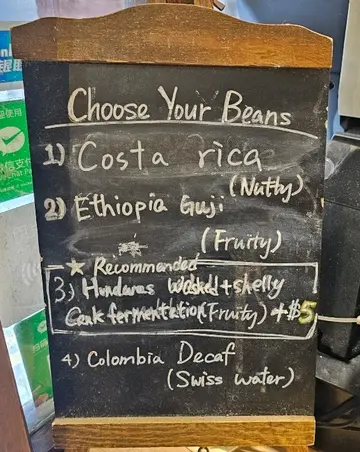 Choose Your Beans
1) Costa rica
(Nutty)
2) Ethiopia Guji
(Fruity)
★ Recommended
3) Hunduras Washed + shelly
Cask fermentation (Fruity) +$5
4) Colombia Decaf
(Swiss water)
使用
微信支付